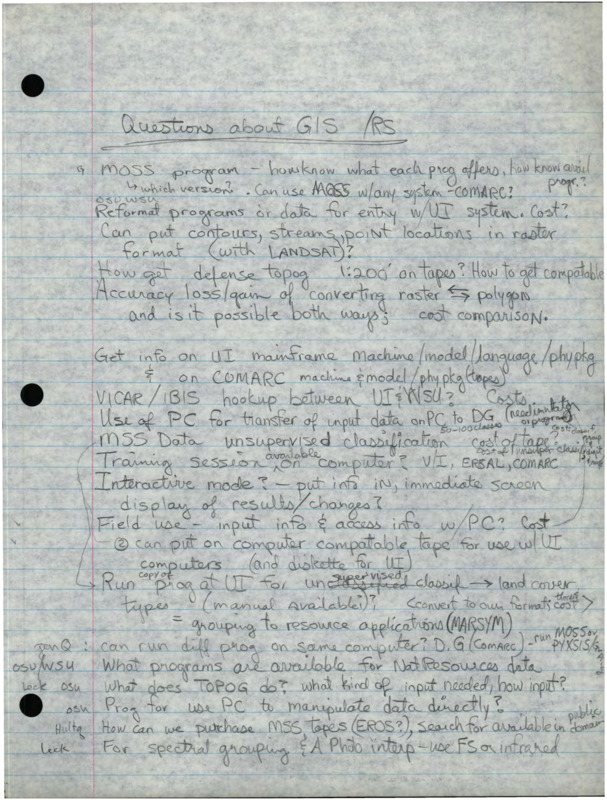 Questions about GIS /RS
MOSS program - how know what each prog offers, how know avail progr.?
↳ which version? . Can use MOSS w/any system - COMARC?
OSU, WSU
Reformat programs or data for entry w/UI system. Cost?
Can put contours, streams, point locations in raster
format (with LANDSAT)?
How get defense topog 1:200' on tapes? How to get compatable
Accuracy loss/gain of converting raster ⇆ polygon
and is it possible both ways; cost comparison.
Get info on UI mainframe machine/model/language/phy pkg
& on COMARC machine & model/phy pkg (tapes)
VICAR/IBIS hookup between UI & WSU? Costs.
Use of PC for transfer of input data on PC to DG (need
or program)
50-100 classes
MSS Data unsupervised classification cost of tape.
Training session available on computer? V/I, ERSAL, COMARC
Interactive mode? - put info in, immediate screen
display of results/changes?
Field use - input info & access info w/PC? Cost
② can put on computer compatable tape for use w/UI
computers (and diskette for UI)
Run copy of prog at UI for unsupervised classif → land cover
types (manual available)? <convert to our format; cost>
= grouping to resource applications (MARSYM)
gen Q: can run diff prog on same computer? D.G (COMARC) - run MOSS or
OSU/WSU What programs are available for Nat Resources data
Leck OSU What does TOPOG do? what kind of input needed, how input?
OSU Prog for use PC to manipulate data directly?
Hultq How can we purchase MSS tapes (EROS?), search for available in public domain
Leck For spectral grouping & A Photo interp - use FS or infrared